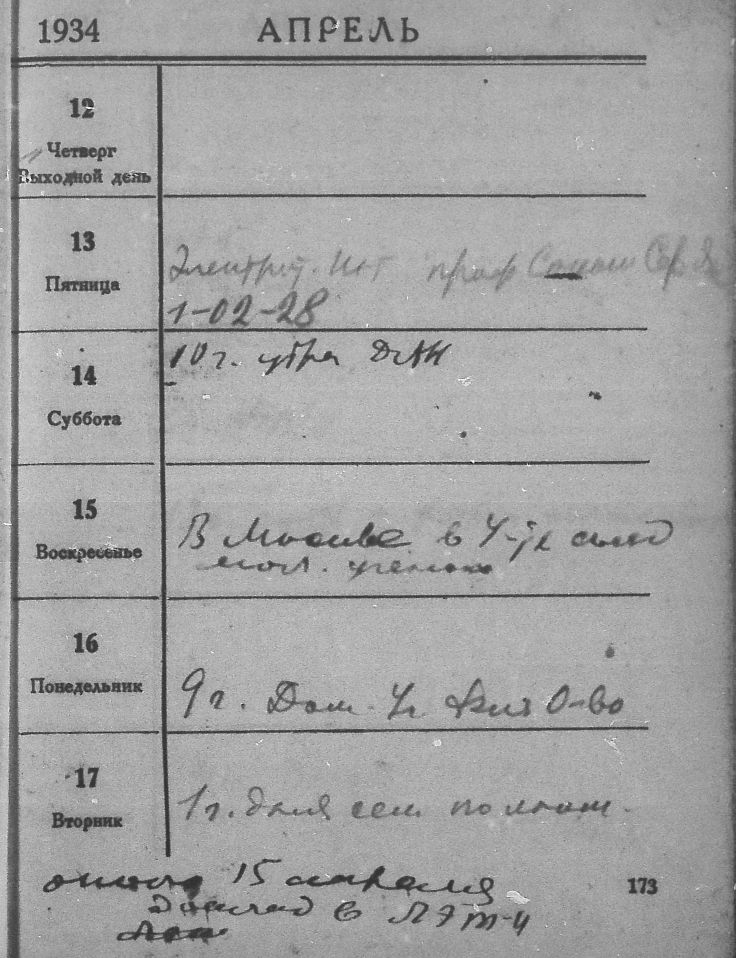 1934 АПРЕЛЬ
12
Четверг
Выходной день
13
Пятница
Электрот. Инт проф
1-02-28
14
Суббота
10 г. утра
15
Воскресенье
В Москве в съезд
мол. ученых
16
Понедельник
9 г. Дом. Уч О-во
17
Вторник
1 г. для сем по
около 15 апреля
доклад в ЛЭТ-И
173